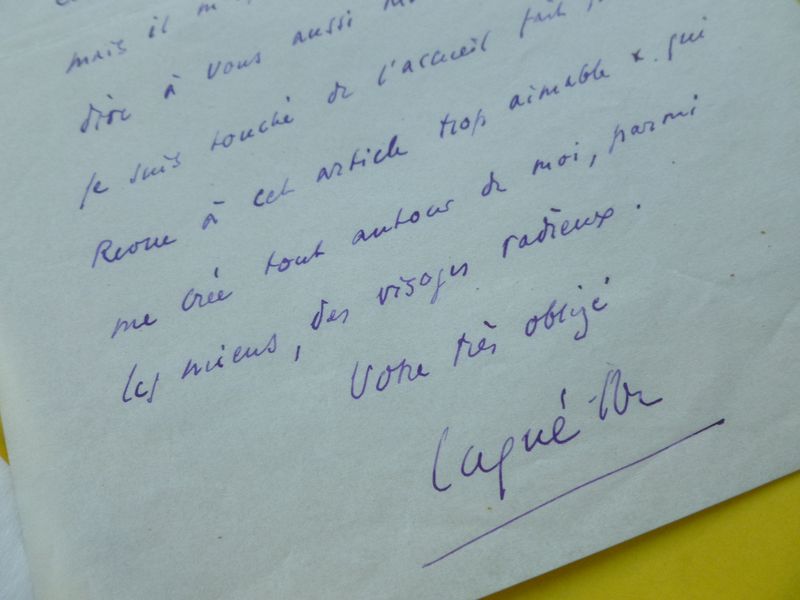 mais il m
dire à vous aussi
je suis touché de l'accueil fait
Revue à cet article trop aimable x qui
me crée tout autour de moi, parmi
les miens, des visages radieux.
Votre très obligé